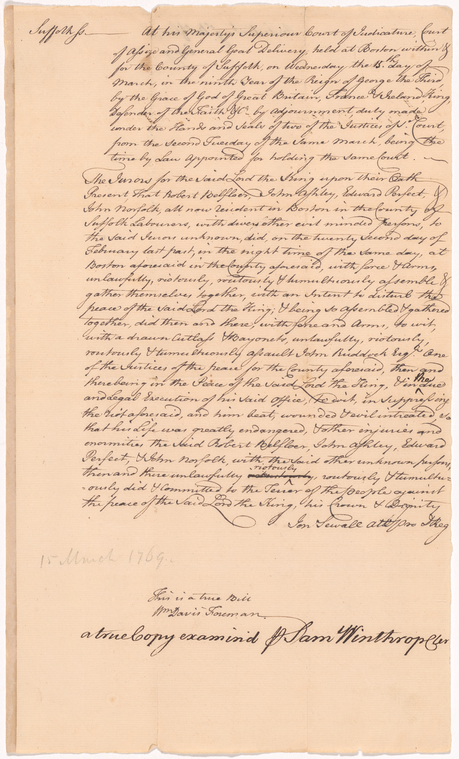 Suffolk ss. At his Majestys Superiour Court of Judicature, Court
of Assize and General Goal Delivery, held at Boston within &
for the County of Suffolk, on Wednesday the 15th day of
March, in the ninth Year of the Reign of George the Third
by the Grace of God of Great Britain, France & Ireland King,
Defender of the Faith &c. by Adjournment, duly made
under the Hands and Seals of two of the Justices of sd. Court,
from the Second Tuesday of the Same March, being the
time by Law Appointed for holding the Same Court.
The Jurors for the said Lord the King upon their Oath
Present That Robert Belfloer, John Ashley, Edward Perfect, &
John Norfolk, all now resident in Boston in the County of
Suffolk Labourers, with divers other evil minded Persons, to
the said Jurors unknown, did, on the twenty Second day of
February last past, in the night time of the Same day, at
Boston aforesaid in the County aforesaid, with force & Arms,
unlawfully, riotously, routously & tumultuously assemble &
gather themselves together, with an Intent to disturb the
peace of the said Lord the King; & being so assembled & gathered
together, did then and there, with force and Arms, to wit,
with a drawn Cutlass & Bayonets, unlawfully, riotously,
routously & tumultuously assault John Ruddock Esqr. One
of the Justices of the peace for the County aforesaid, then and
there being in the Peace of the Said Lord the King, & in the due
and Legal Execution of his Said Office, to wit, in Suppressing
the Riot aforesaid, and him beat, wounded & evil intreated so
that his life was greatly endangered, & other injuries and
enormities the Said Robert Belfloer, John Ashley, Edward
Perfect, & John Norfolk, with the Said other unknown persons,
then and there unlawfully riotously, routously & tumultu-
-ously did & Committed to the Terror of the people against
the peace of the Said Lord the King, his Crown & Dignity
Jon Sewall Atty pro D Reg
15 March 1769.
This is a true Bill
Wm Davis Foreman
a true Copy examind P Sam Winthrop Cler